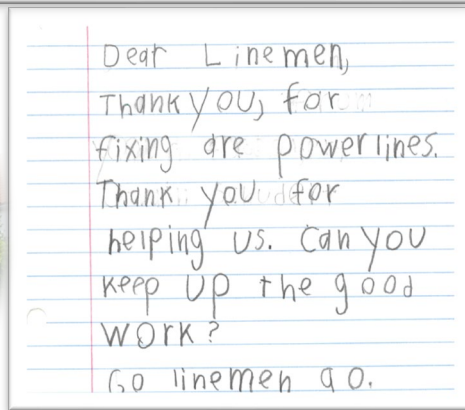 Dear Linemen,
Thank you, for
fixing are powerlines.
Thank you for
helping us. Can you
keep up the good
work?
Go linemen go.